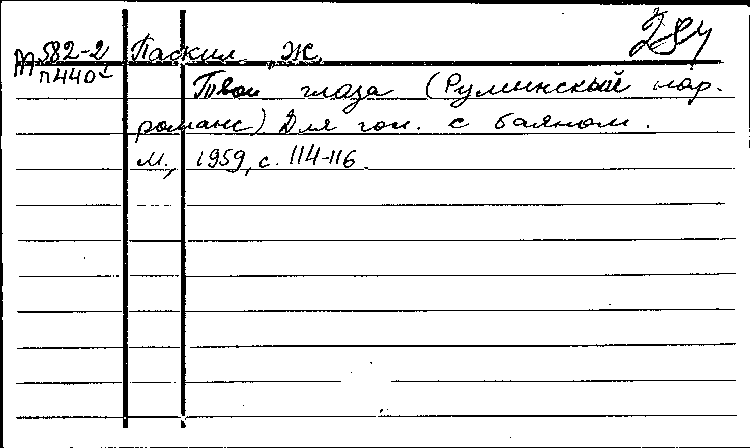 284
М 582-2 Паскил Ж.
П440
Твои глаза (Румынский нар.
романс) Для гол. с баяном.
М., 1959, с. 114-116.